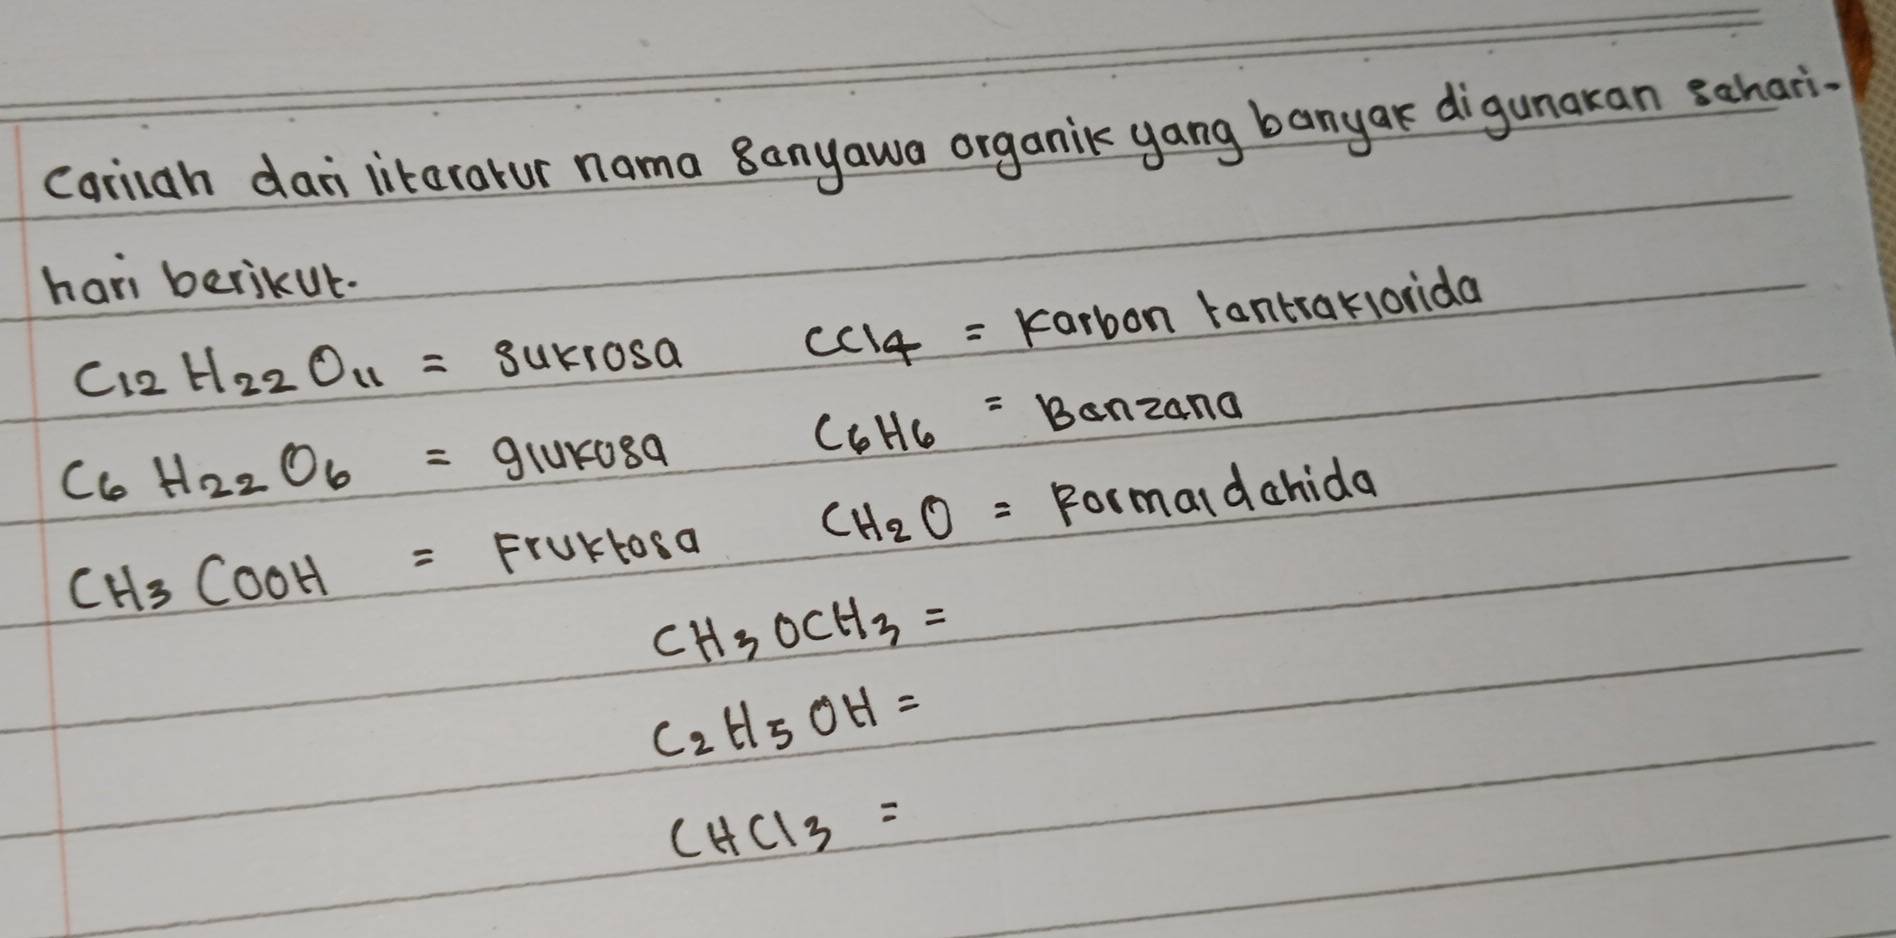 Carilah dari literatur nama senyawa organik yang banyak digunakan sehari-
hari berikut.
C12 H22 O11 = sukrosa CCl4 = Karbon tentraklorida
C6 H22 O6 = glukosa C6H6 = Benzena
CH3 COOH = Fruktosa CH2O = Formaldehida
CH3OCH3 =
C2H5OH =
CHCl3 =